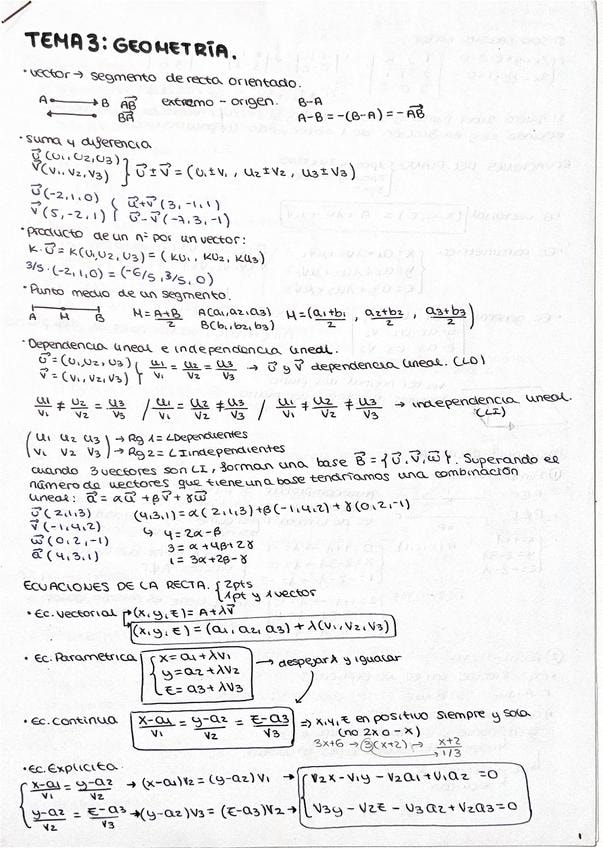 TEMA 3: GEOMETRÍA.
· vector → segmento de recta orientado.
A → B   AB   extremo - origen.   B-A
BA   A-B = -(B-A) = -AB
· Suma y diferencia
u⃗ (u1, u2, u3)
v⃗ (v1, v2, v3) } u⃗ ± v⃗ = (u1 ± v1, u2 ± v2, u3 ± v3)
u⃗ (-2, 1, 0) { u⃗+v⃗ (3, -1, 1)
v⃗ (5, -2, 1) { u⃗-v⃗ (-7, 3, -1)
· Producto de un nº por un vector:
K·u⃗ = K(u1, u2, u3) = (Ku1, Ku2, Ku3)
3/5·(-2, 1, 0) = (-6/5, 3/5, 0)
· Punto medio de un segmento.
A M B   M = A+B/2   A(a1, a2, a3)   M = (a1+b1/2, a2+b2/2, a3+b3/2)
B(b1, b2, b3)
· Dependencia lineal e independencia lineal.
u⃗ = (u1, u2, u3)
v⃗ = (v1, v2, v3) { u1/v1 = u2/v2 = u3/v3 → u⃗ y v⃗ dependencia lineal. (LD)
u1/v1 ≠ u2/v2 = u3/v3 / u1/v1 = u2/v2 ≠ u3/v3 / u1/v1 ≠ u2/v2 ≠ u3/v3 → independencia lineal. (LI)
(u1 u2 u3) → Rg 1 = LDependientes
(v1 v2 v3) → Rg 2 = LIindependientes
cuando 3 vectores son LI, forman una base B⃗ = {u⃗, v⃗, w⃗}. Superando el
número de vectores que tiene una base tendríamos una combinación
lineal: a⃗ = αu⃗ + βv⃗ + γw⃗
u⃗ (2,1,3)   (4,3,1) = α(2,1,3) + β(-1,4,2) + γ(0,2,-1)
v⃗ (-1,4,2)   ↳ 4 = 2α - β
w⃗ (0,2,-1)   3 = α + 4β + 2γ
a⃗ (4,3,1)   1 = 3α + 2β - γ
ECUACIONES DE LA RECTA. { 2pts
1pt y 1 vector
· Ec. vectorial → (x,y,z) = A + λv⃗
(x,y,z) = (a1, a2, a3) + λ(v1, v2, v3)
· Ec. Parametrica { x = a1 + λv1
y = a2 + λv2 → despejar λ y igualar
z = a3 + λv3
· Ec. Continua   x-a1/v1 = y-a2/v2 = z-a3/v3 ⇒ x, y, z en positivo siempre y sola
(no 2x o -x)
3x+6 → 3(x+2) → x+2/1/3
· Ec. Explicita.
{ x-a1/v1 = y-a2/v2 → (x-a1)v2 = (y-a2)v1 → { v2x - v1y - v2a1 + v1a2 = 0
y-a2/v2 = z-a3/v3 → (y-a2)v3 = (z-a3)v2 → v3y - v2z - v3a2 + v2a3 = 0
1